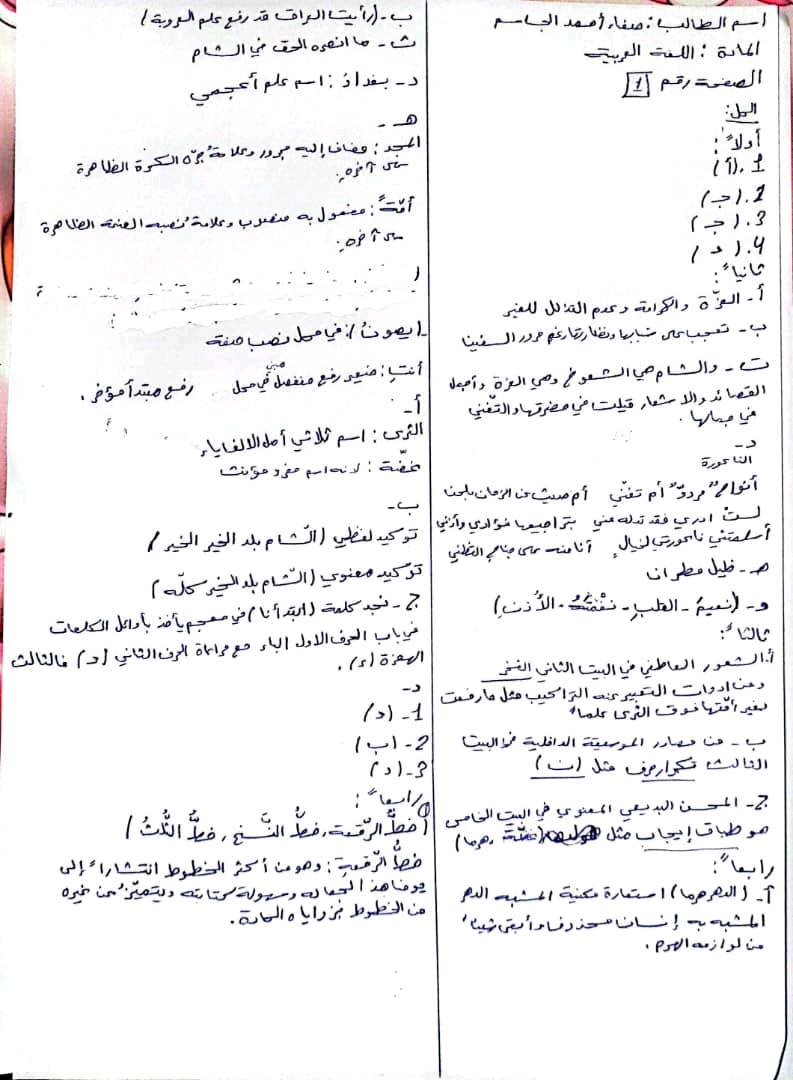 اسم الطالب: صفاء أحمد الجاسم
المادة: اللغة العربية
الصفحة رقم 1
الحل:
أولاً:
1. (أ)
2. (ج)
3. (ج)
4. (د)
ثانياً:
أ- العزّة والكرامة وعدم التذلل للغير
ب- تعجب على شبابها ونظارتها رغم مرور السنينا
ت- والشام هي الشموخ وهي العزة وأجمل
القصائد والاشعار قيلت في حضرتها والتغني
في جمالها.
د-
الناعورة
أنواحٌ مردودٌ أم تغنّي أم حديث عن الزمان بلحن
لستُ ادري فقد تدله مني بتراجيعها فؤادي وأذني
أسلمتني ناعورتي لخيالٍ أنا منه على جناح التظني
هـ- خليل مطران
و- (نعيمُ - القلبِ - نغمتهُ - الأذنِ)
ثالثاً:
أ. الشعور العاطفي في البيت الثاني الفخر
ومن ادوات التعبير عنه التراكيب مثل ما رفعت
لغير أمّتها فوق الثرى علماً
ب- من مصادر الموسيقا الداخلية في البيت
الثالث تكرار حرف مثل (ن)
ج- المحسن البديعي المعنوي في البيت الخامس
هو طباق إيجاب مثل (غضّة، هرما)
رابعاً:
أ- (الدهر هرما) استعارة مكنية المشبه الدهر
المشبه به إنسان محذوف وأبقى شيئاً
من لوازمه الهرم.
ب- (رأيت العراق قد رفع علم العروبة)
ث- ما انصره الحق في الشام
د- بغدادُ: اسم علم أعجمي
هـ-
المجد: مضاف إليه مجرور وعلامة جرّه الكسرة الظاهرة
على آخره.
أمّةً: مفعول به منصوب وعلامة نصبه الفتحة الظاهرة
على آخره.
(يصونُ): في محل نصب صفة
أنتِ: ضمير رفع منفصل مبني في محل رفع مبتدأ مؤخر.
أ-
الثرى: اسم ثلاثي أصل الالف ياء
غضّة: لانه اسم مفرد مؤنث
ب-
توكيد لفظي (الشّام بلد الخير الخير)
توكيد معنوي (الشّام بلد الخير كلّه)
ج- نجد كلمة (ابتدأنا) في معجم يأخذ بأوائل الكلمات
في باب الحرف الاول الباء مع مراعاة الحرف الثاني (د) فالثالث
الهمزة (ء).
د-
1- (د)
2- (ب)
3- (د)
رابعاً:
(خطُّ الرّقعة، خطُّ النَّسخ، خطُّ الثُّلثُ)
خطُّ الرّقعةِ: وهو من أكثر الخطوط انتشاراً إلى
يومنا هذا لجماله وسهولة كتابته ويتميّز عن غيره
من الخطوط بزواياه الحادة.